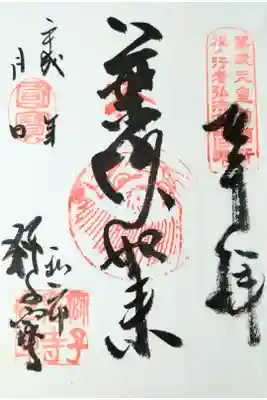 奉拝
聖武天皇勅願所
役ノ行者弘法大師
薬師如来
平成 年
月 日
私市
獅子窟寺
獅子窟寺